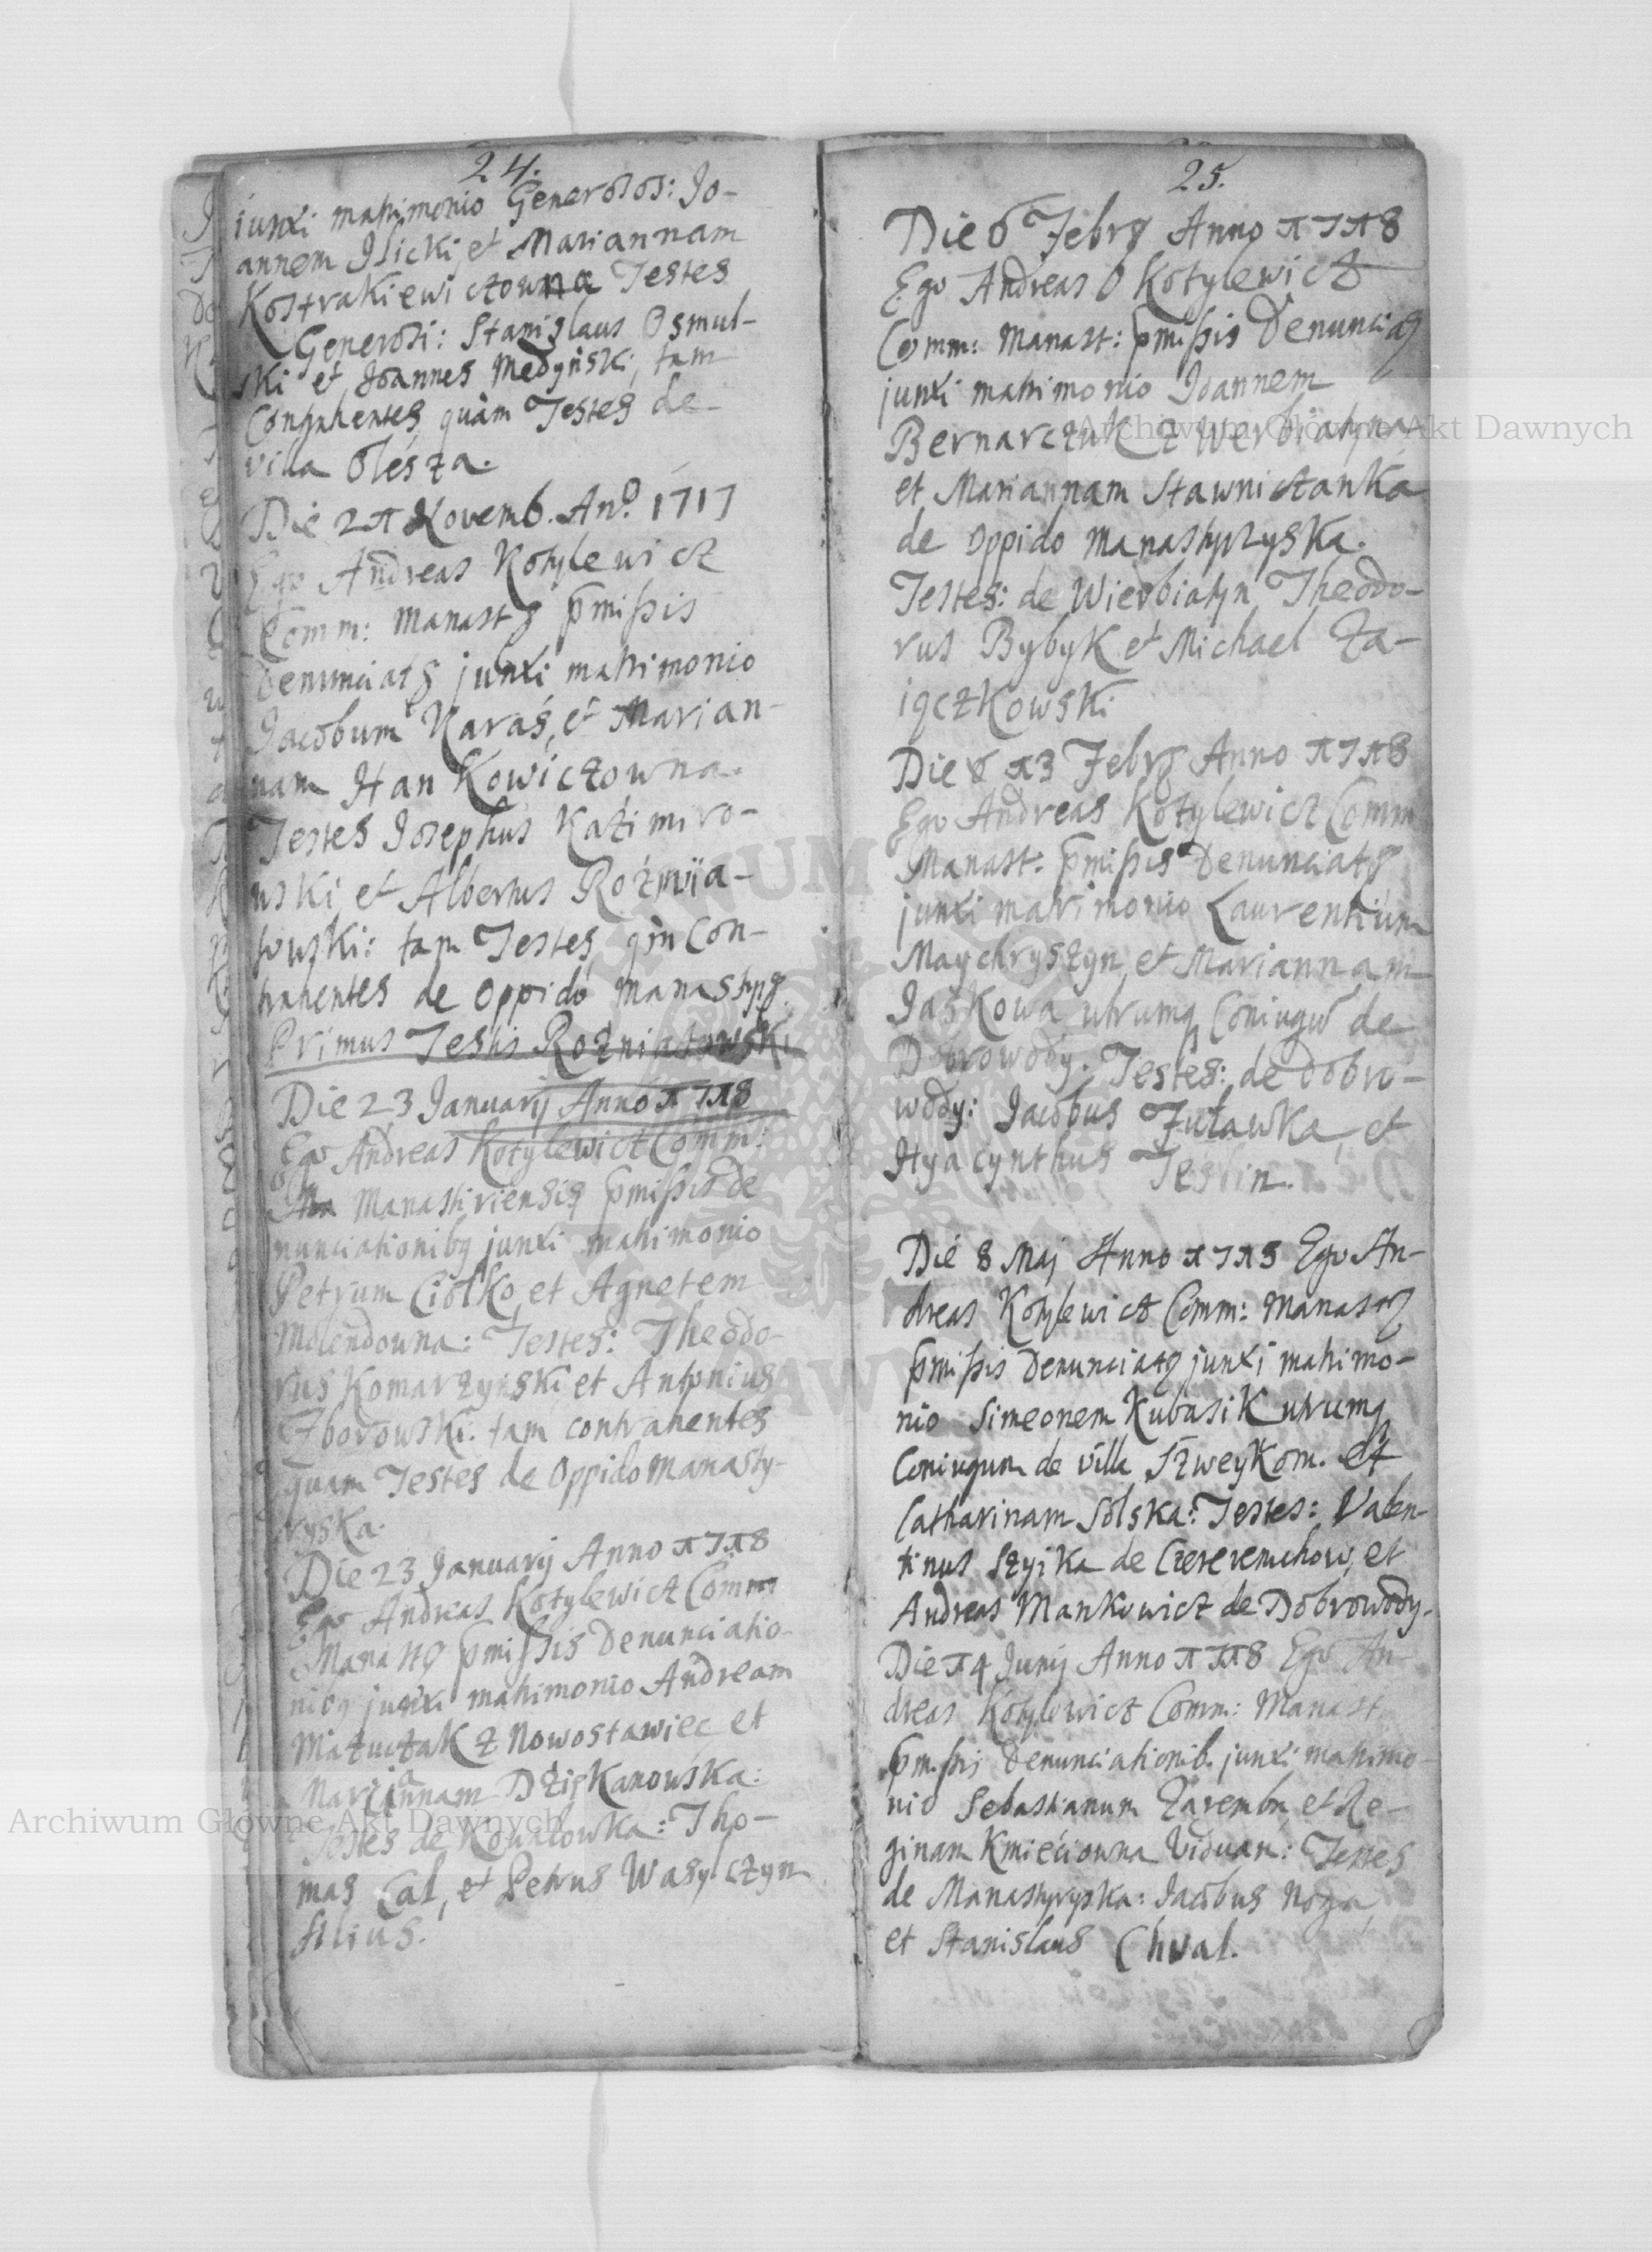 24.
iunxi matrimonio Generosos: Jo-
annem Ilicki, et Mariannam
Kostrakiewiczowna Testes
Generosi: Stanislaus Osmul-
ski et Joannes Medyński, tam
Contrahentes quàm Testes de
villa Olesza.
Die 21 Novemb. Anº. 1717
Ego Andreas Kotylewicz
Comm: Manast9 pmissis
Denunciat9 junxi matrimonio
Jacobum Karaś, et Marian-
nam Hankowiczowna.
Testes Josephus Kazimiro-
uski et Albertus
tam Testes qm Con-
trahentes de Oppido Manastyr9.
Primus Testis Rozniatowski
Die 23 Januarij Anno 1718
Ego Andreas Kotylewicz Comm:
Manastiriensis pmissis de
nunciationib9 junxi matrimonio
Petrum Ciołko, et Agnetem
Molendowna: Testes: Theodo-
rus Komarzyński et Antonius
Zborowski: tam contrahentes
quam Testes de Oppido Manasty-
ryska.
Die 23 Januarij Anno 1718
Ego Andreas Kotylewicz Comm
Manast9 pmissis Denunciatio-
nib9 junxi matrimonio Andream
Mazuczak z Nowostawiec et
Mariannam
Testes de Kowalowka: Tho-
mas Cal, et Petrus Wasylczyn
filius.
25.
Die 6 Febr9 Anno 1718
Ego Andreas Kotylewicz
Comm: Manast: pmissis Denunciat9
junxi matrimonio Joannem
Bernarczuk z
et Mariannam Stawniczanka
de Oppido Manastyrzyska.
Testes: de Wierbiatyn Theodo-
rus Bybyk et Michael Za-
iączkowski
Die 13 Febr9 Anno 1718
Ego Andreas Kotylewicz Comm
Manast: pmissis Denunciat9
junxi matrimonio Laurentium
Maychryszyn, et Mariannam
Jaskowa utrumq Coniugũ de
Dobrowody. Testes: de Dobro-
wody: Jacobus Zuławka, et
Hyacynthus Teslin.
Die 8 Maj Anno 1718 Ego An-
dreas Kotylewicz Comm: Manast9
pmissis Denunciat9 junxi matrimo-
nio Simeonem Kubasik utrumq
Coniugum de villa Szweykom. et
Catharinam Solska: Testes: Valen-
tinus Szyika de et
Andreas Mankowicz de Dobrowody.
Die 14 Junij Anno 1718 Ego An-
dreas Kotylewicz Comm: Manast
pmissis Denunciationib. junxi matrimo-
nio Sebastianum Zaremba, et Re-
ginam Kmieciowna Viduam: Testes
de Manastyryska: Jacobus Noga
et Stanislaus Chval.
Archiwum Główne Akt Dawnych
Archiwum Główne Akt Dawnych